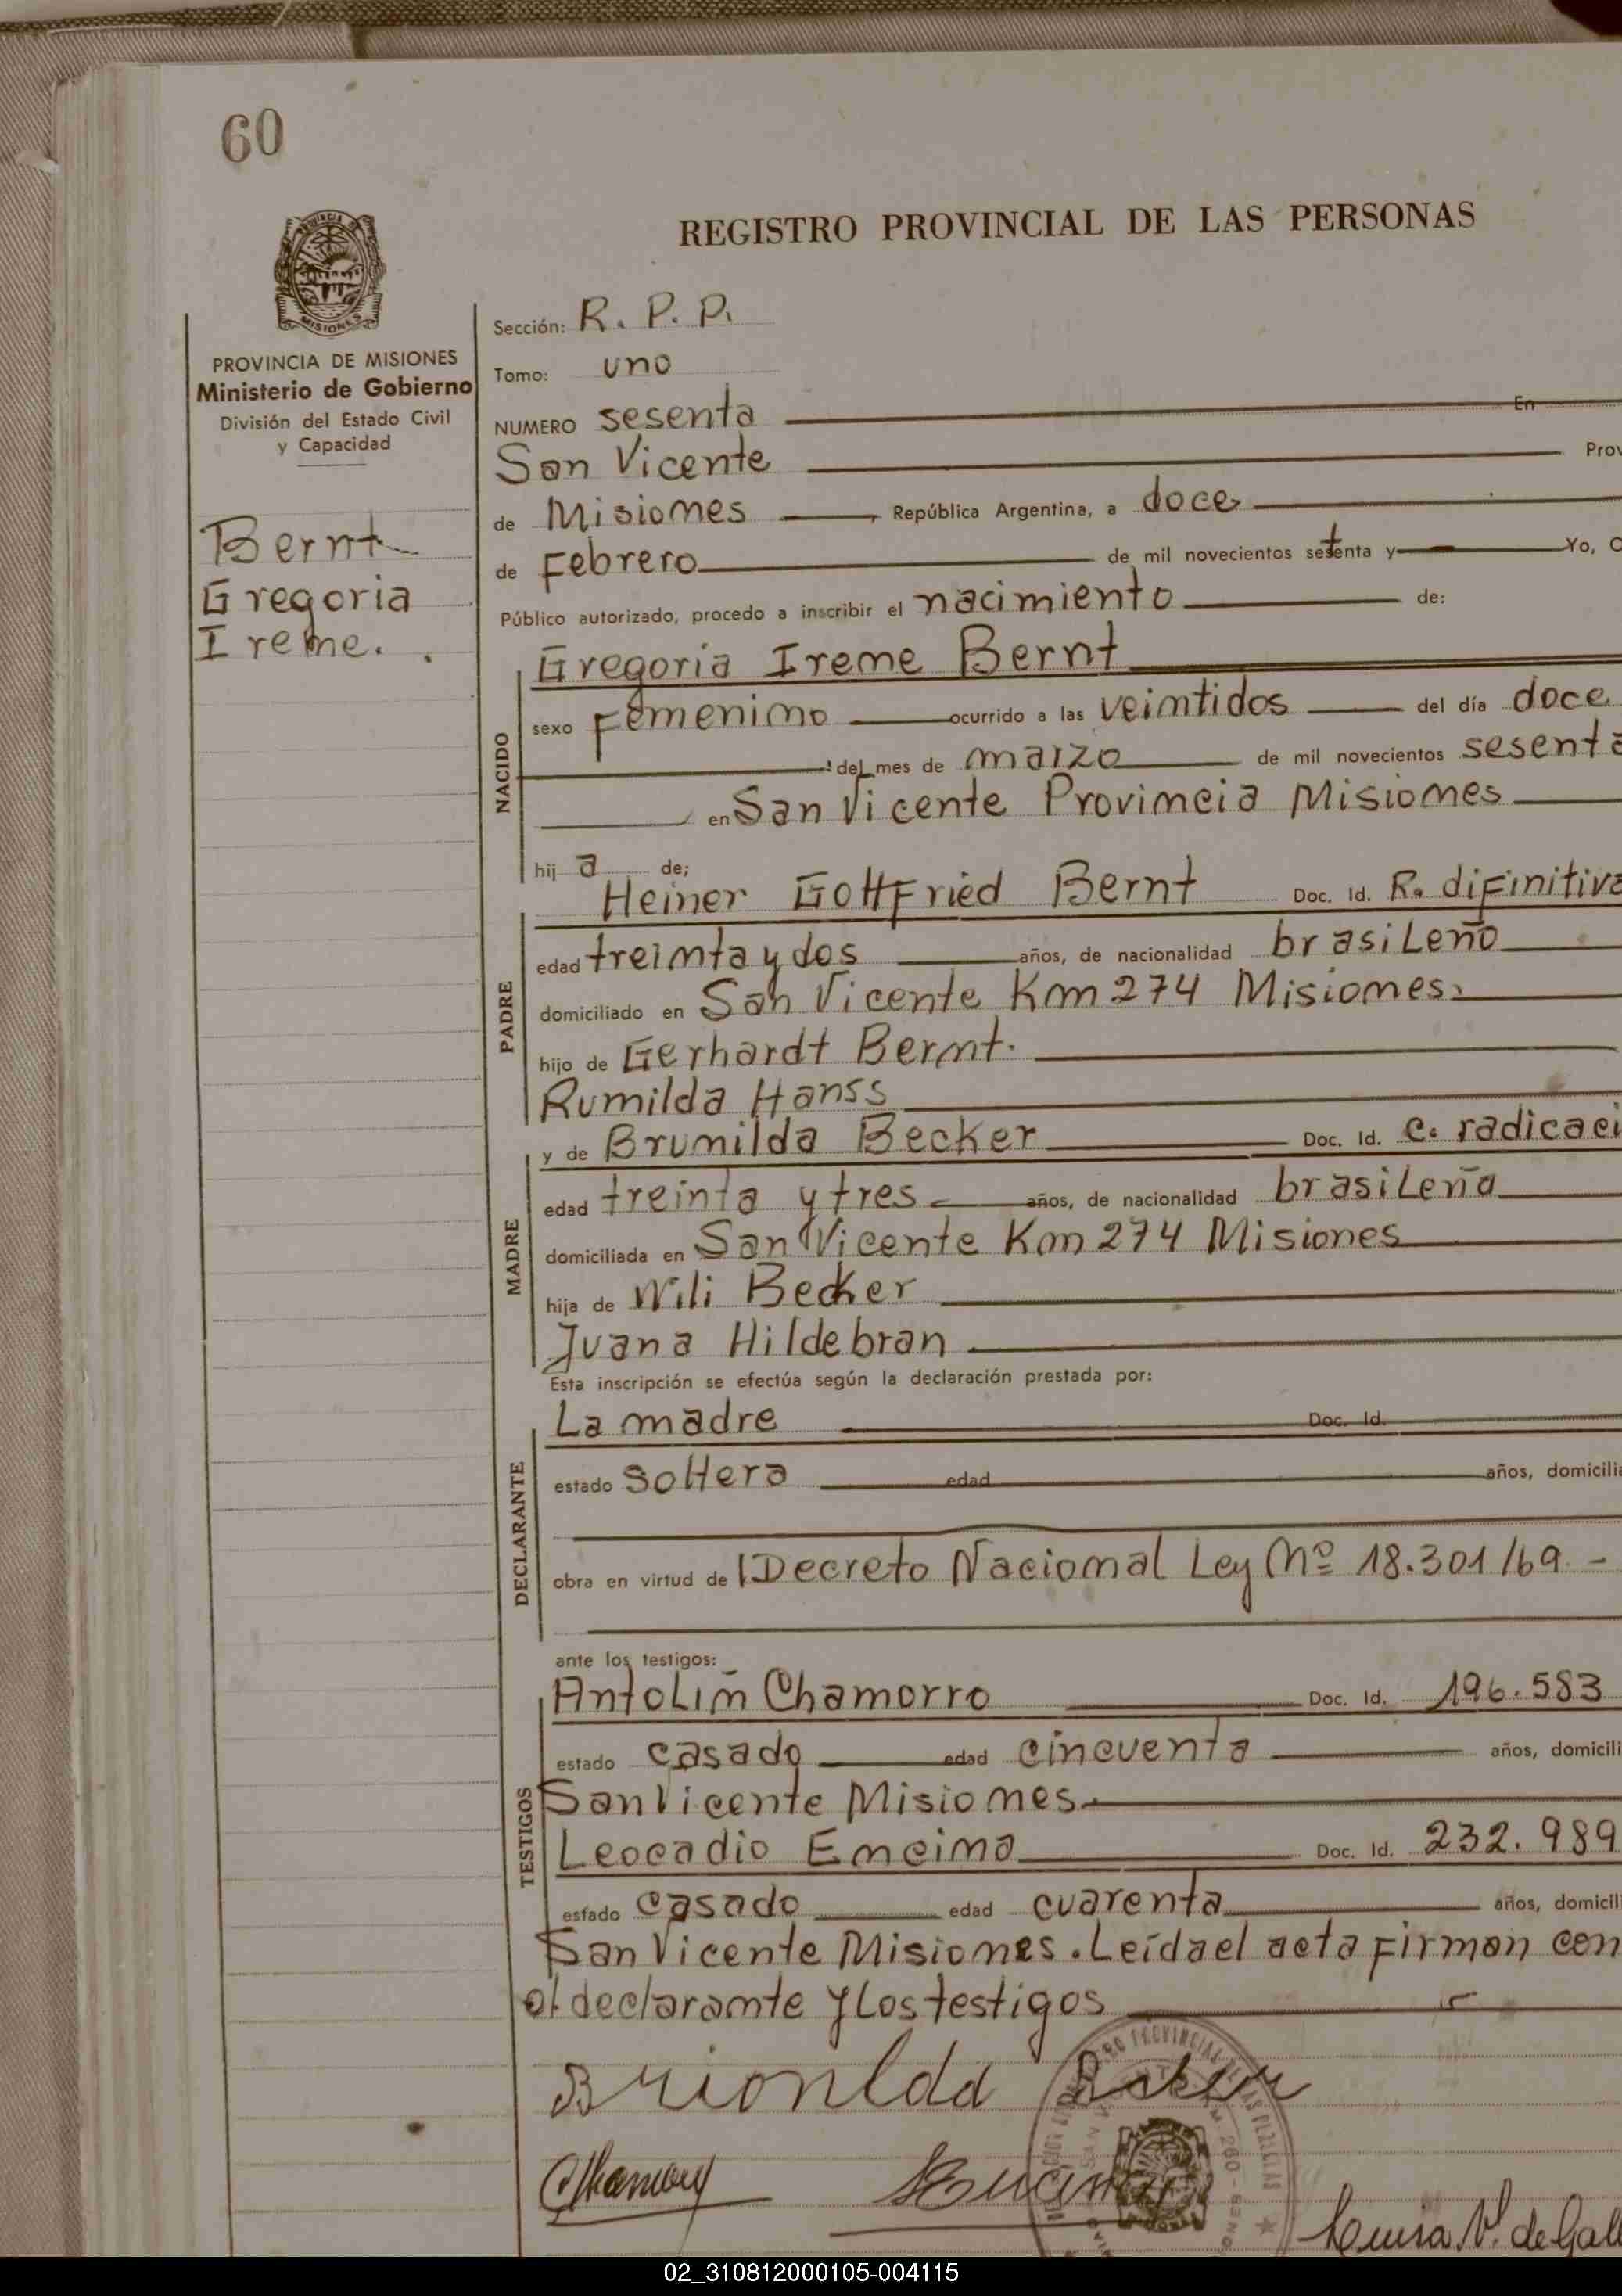 60
REGISTRO PROVINCIAL DE LAS PERSONAS
MISIONES
PROVINCIA DE MISIONES
Ministerio de Gobierno
División del Estado Civil
y Capacidad
Bernt
Gregoria
Ireme.
Sección: R. P. P.
Tomo: uno
NUMERO sesenta En
San Vicente Prov
de Misiomes, República Argentina, a doce
de Febrero de mil novecientos setenta y Yo, O
Público autorizado, procedo a inscribir el nacimiento de:
NACIDO
Gregoria Ireme Bernt
sexo Femenimo ocurrido a las veimtidos del día doce
del mes de marzo de mil novecientos sesenta
en San Vicente Provimcia Misiomes
hij a de;
PADRE
Heiner Gottfried Bernt Doc. Id. R. difinitiva
edad treimta y dos años, de nacionalidad brasileño
domiciliado en San Vicente Km 274 Misiomes.
hijo de Gerhardt Bermt.
Rumilda Hanss
MADRE
y de Brumilda Becker Doc. Id. C. radicaci
edad treinta y tres años, de nacionalidad brasileña
domiciliada en San Vicente Km 274 Misiones
hija de Wili Becker
Juana Hildebran
Esta inscripción se efectúa según la declaración prestada por:
DECLARANTE
La madre Doc. Id.
estado soltera edad años, domicilia
obra en virtud de Decreto Naciomal Ley Nº 18.301/69.-
ante los testigos:
TESTIGOS
Antolim Chamorro Doc. Id. 196.583
estado casado edad cincuenta años, domicili
San Vicente Misiomes.
Leocadio Emcima Doc. Id. 232.989
estado casado edad cuarenta años, domicili
San Vicente Misiones. Leída el acta firman con
el declaramte y los testigos
Brionlda Beker
Chamorr
Encina
Luisa V. de Gall
02_310812000105-004115